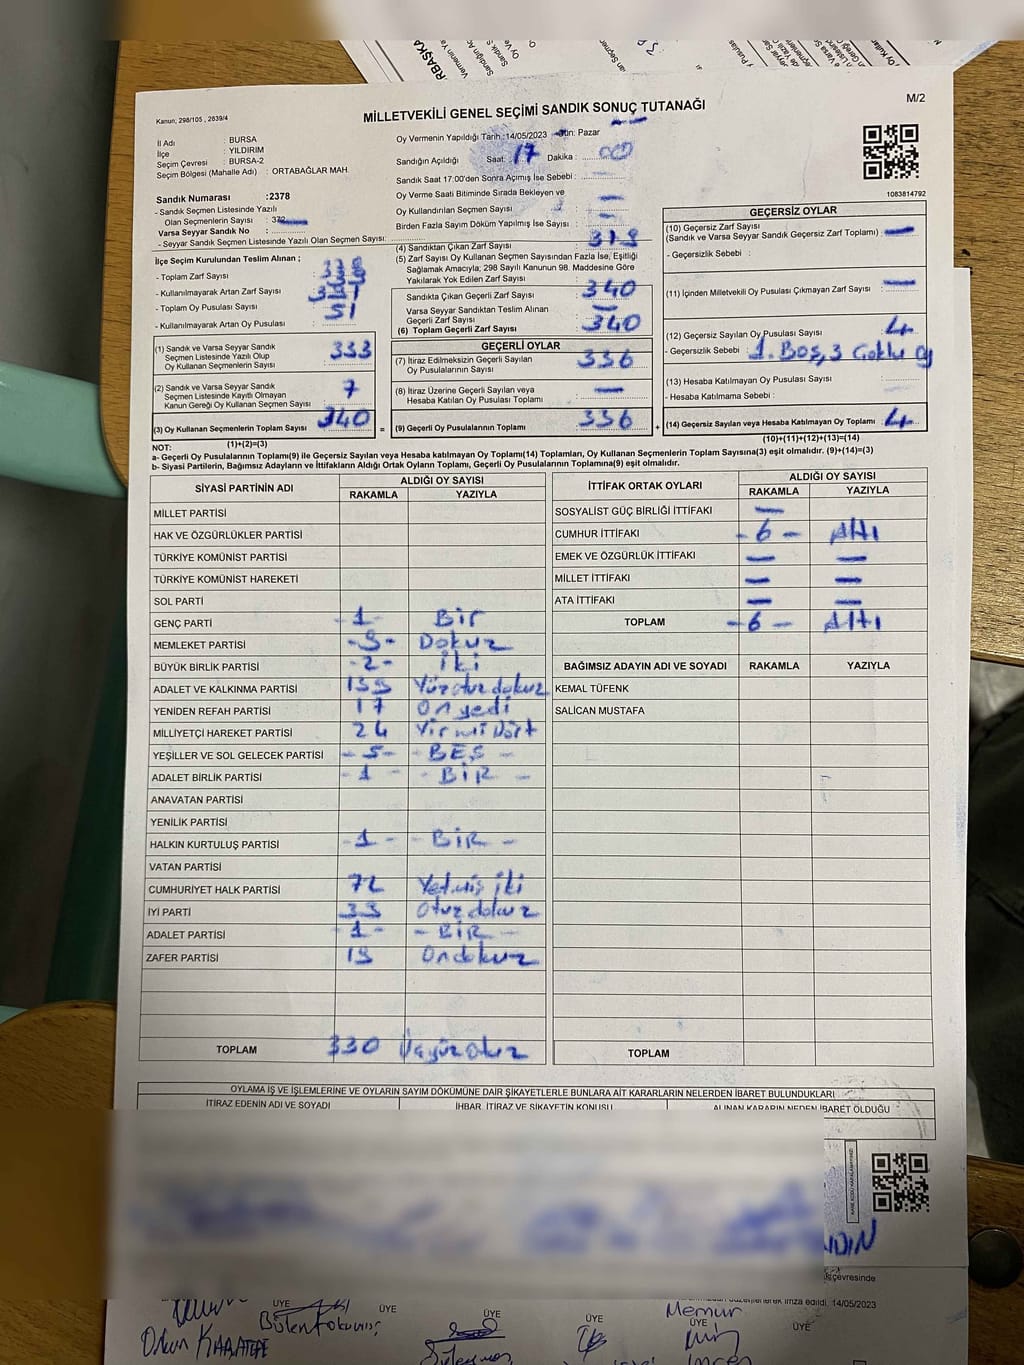 RBAŞKA
M/2
Kanun; 298/105 , 2839/4
MİLLETVEKİLİ GENEL SEÇİMİ SANDIK SONUÇ TUTANAĞI
İl Adı : BURSA
İlçe : YILDIRIM
Seçim Çevresi : BURSA-2
Seçim Bölgesi (Mahalle Adı) : ORTABAĞLAR MAH.
Sandık Numarası :2378
- Sandık Seçmen Listesinde Yazılı
Olan Seçmenlerin Sayısı : 372
Varsa Seyyar Sandık No :
- Seyyar Sandık Seçmen Listesinde Yazılı Olan Seçmen Sayısı:
İlçe Seçim Kurulundan Teslim Alınan ;
- Toplam Zarf Sayısı :
- Kullanılmayarak Artan Zarf Sayısı :
- Toplam Oy Pusulası Sayısı :
- Kullanılmayarak Artan Oy Pusulası : 51
(1) Sandık ve Varsa Seyyar Sandık
Seçmen Listesinde Yazılı Olup
Oy Kullanan Seçmenlerin Sayısı : 333
(2) Sandık ve Varsa Seyyar Sandık
Seçmen Listesinde Kayıtlı Olmayan
Kanun Gereği Oy Kullanan Seçmen Sayısı : 7
(3) Oy Kullanan Seçmenlerin Toplam Sayısı : 340
(1)+(2)=(3)
Oy Vermenin Yapıldığı Tarih :14/05/2023 Gün: Pazar
Sandığın Açıldığı Saat: 17 Dakika : 00
Sandık Saat 17:00'den Sonra Açımış İse Sebebi :
Oy Verme Saati Bitiminde Sırada Bekleyen ve
Oy Kullandırılan Seçmen Sayısı :
Birden Fazla Sayım Döküm Yapılmış İse Sayısı :
(4) Sandıktan Çıkan Zarf Sayısı :
(5) Zarf Sayısı Oy Kullanan Seçmen Sayısından Fazla İse, Eşitliği
Sağlamak Amacıyla; 298 Sayılı Kanunun 98. Maddesine Göre
Yakılarak Yok Edilen Zarf Sayısı :
Sandıkta Çıkan Geçerli Zarf Sayısı : 340
Varsa Seyyar Sandıktan Teslim Alınan
Geçerli Zarf Sayısı : —
(6) Toplam Geçerli Zarf Sayısı : 340
GEÇERLİ OYLAR
(7) İtiraz Edilmeksizin Geçerli Sayılan
Oy Pusulalarının Sayısı : 336
(8) İtiraz Üzerine Geçerli Sayılan veya
Hesaba Katılan Oy Pusulası Toplamı : —
= (9) Geçerli Oy Pusulalarının Toplamı : 336
1083814792
GEÇERSİZ OYLAR
(10) Geçersiz Zarf Sayısı
(Sandık ve Varsa Seyyar Sandık Geçersiz Zarf Toplamı) : —
- Geçersizlik Sebebi :
(11) İçinden Milletvekili Oy Pusulası Çıkmayan Zarf Sayısı : —
(12) Geçersiz Sayılan Oy Pusulası Sayısı : 4
- Geçersizlik Sebebi : 1. Boş, 3 Çoklu oy
(13) Hesaba Katılmayan Oy Pusulası Sayısı :
- Hesaba Katılmama Sebebi :
+ (14) Geçersiz Sayılan veya Hesaba Katılmayan Oy Toplamı : 4
(10)+(11)+(12)+(13)=(14)
NOT:
a- Geçerli Oy Pusulalarının Toplamı(9) ile Geçersiz Sayılan veya Hesaba katılmayan Oy Toplamı(14) Toplamları, Oy Kullanan Seçmenlerin Toplam Sayısına(3) eşit olmalıdır. (9)+(14)=(3)
b- Siyasi Partilerin, Bağımsız Adayların ve İttifakların Aldığı Ortak Oyların Toplamı, Geçerli Oy Pusulalarının Toplamına(9) eşit olmalıdır.
SİYASİ PARTİNİN ADI ALDIĞI OY SAYISI
RAKAMLA YAZIYLA
MİLLET PARTİSİ
HAK VE ÖZGÜRLÜKLER PARTİSİ
TÜRKİYE KOMÜNİST PARTİSİ
TÜRKİYE KOMÜNİST HAREKETİ
SOL PARTİ
GENÇ PARTİ -1- Bir
MEMLEKET PARTİSİ -9- Dokuz
BÜYÜK BİRLİK PARTİSİ -2- İki
ADALET VE KALKINMA PARTİSİ 139 Yüzotuz dokuz
YENİDEN REFAH PARTİSİ 17 On yedi
MİLLİYETÇİ HAREKET PARTİSİ 24 Yirmi Dört
YEŞİLLER VE SOL GELECEK PARTİSİ -5- -BEŞ-
ADALET BİRLİK PARTİSİ -1- -BİR-
ANAVATAN PARTİSİ
YENİLİK PARTİSİ
HALKIN KURTULUŞ PARTİSİ -1- -BİR-
VATAN PARTİSİ
CUMHURİYET HALK PARTİSİ 72 Yetmiş iki
İYİ PARTİ 39 Otuz dokuz
ADALET PARTİSİ -1- -BİR-
ZAFER PARTİSİ 19 Ondokuz
TOPLAM 330 Üçyüz otuz
İTTİFAK ORTAK OYLARI ALDIĞI OY SAYISI
RAKAMLA YAZIYLA
SOSYALİST GÜÇ BİRLİĞİ İTTİFAKI —
CUMHUR İTTİFAKI -6- Altı
EMEK VE ÖZGÜRLÜK İTTİFAKI — —
MİLLET İTTİFAKI — —
ATA İTTİFAKI — —
TOPLAM -6- Altı
BAĞIMSIZ ADAYIN ADI VE SOYADI RAKAMLA YAZIYLA
KEMAL TÜFENK
SALİCAN MUSTAFA
TOPLAM
OYLAMA İŞ VE İŞLEMLERİNE VE OYLARIN SAYIM DÖKÜMÜNE DAİR ŞİKAYETLERLE BUNLARA AİT KARARLARIN NELERDEN İBARET BULUNDUKLARI
İTİRAZ EDENİN ADI VE SOYADI İHBAR, İTİRAZ VE ŞİKAYETİN KONUSU ALINAN KARARIN NEDEN İBARET OLDUĞU
çevresinde
imza edildi. 14/05/2023
ÜYE ÜYE ÜYE ÜYE ÜYE ÜYE
Memur